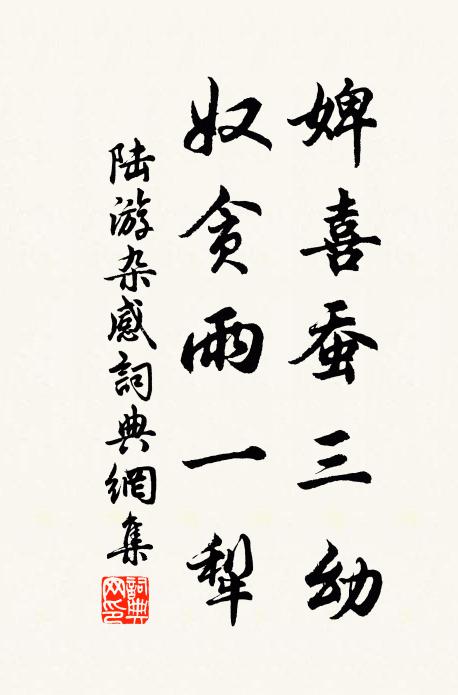 婢喜蚕三幼
奴贪雨一犁
陆游杂感詞典網集
詞典網印